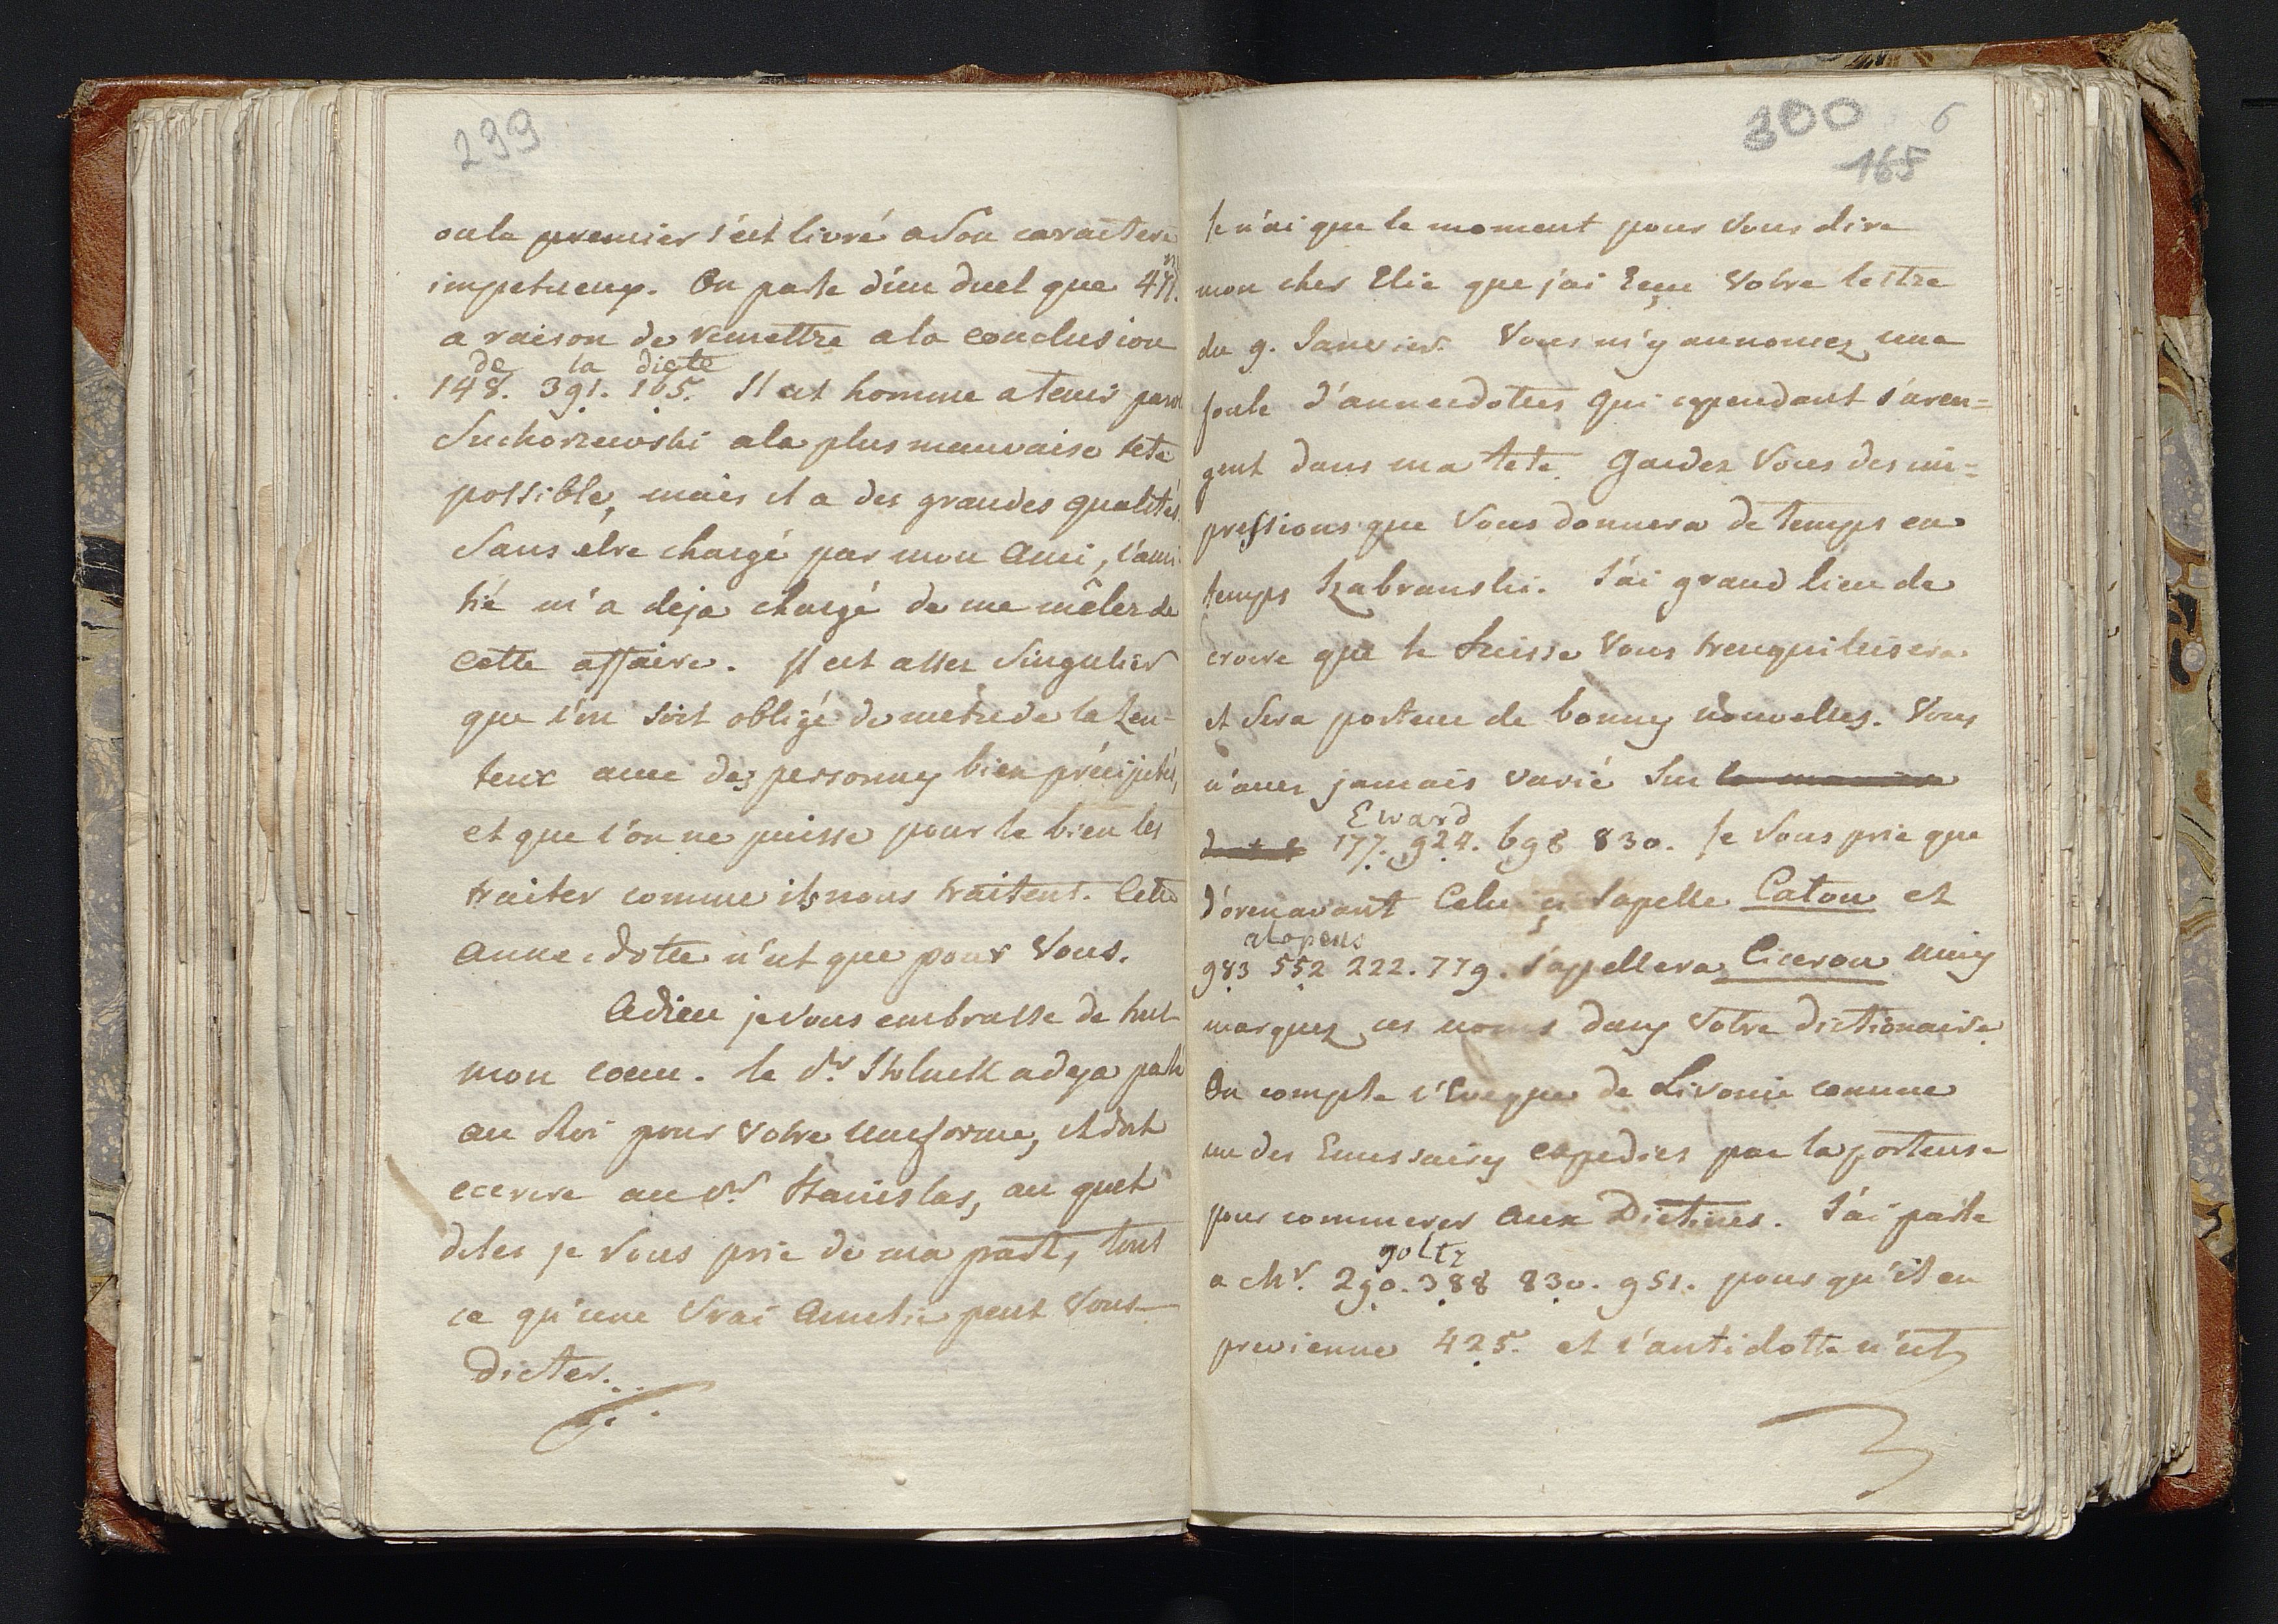 299
ou le premier s'est livré a son caractere
impetueux. On parle d'un duel que
a raison de remettre a la conclusion
de la diete
148. 391. 105. Il est homme a tenir paro
Suchorzewski a la plus mauvaise tete
possible, mais il a des grandes qualités.
Sans etre chargé par mon Ami, l'ami
tié m'a deja chargé de me mêler de
cette affaire. Il est assez singulier
que l'on soit obligé de metre de la Len-
teur avec des personnes bien précipités,
et que l'on ne puisse pour le bien les
traiter comme ils nous traitent. Cette
annecdotte n'est que pour Vous.
Adieu je vous embrasse de tout
mon coeur. le Sr. a deja parlé
au Roi pour votre uneforme, et doit
ecrire au Stanislas, au quel
dites je vous prie de ma part, tout
ce qu'une vrai Amitie peut vous
dicter.
300 6
165
Je n'ai que le moment pour Vous dire
mon cher Elie que j'ai reçu Votre lettre
du 9. Janvier. Vous m'y annoncez une
foule d'annecdottes qui cependant s'aren=
gent dans ma tete. Gardez Vous des im=
pressions que Vous donnera de temps en
temps Zabranski. J'ai grand lieu de
croire que le Suisse Vous trenquilisera
et sera porteur de bonnes nouvelles. Vous
n'avez jamais varié sur la maniere
Eward
177. 924. 698 830. Je Vous prie que
d'orenavant Celui ci s'apelle Caton et
alopeus
983 552 222. 779. s'appellera Ciceron
marquez ces noms dans Votre dictionaire.
On compte l'Eveque de Livonie comme
un des Emissaires expedies par la porteuse
pour commerer aux Dietines. J'ai parlé
goltz
a Mr. 290. 388 830. 951. pour qu'il en
previenne 425. et l'antidotte n'est